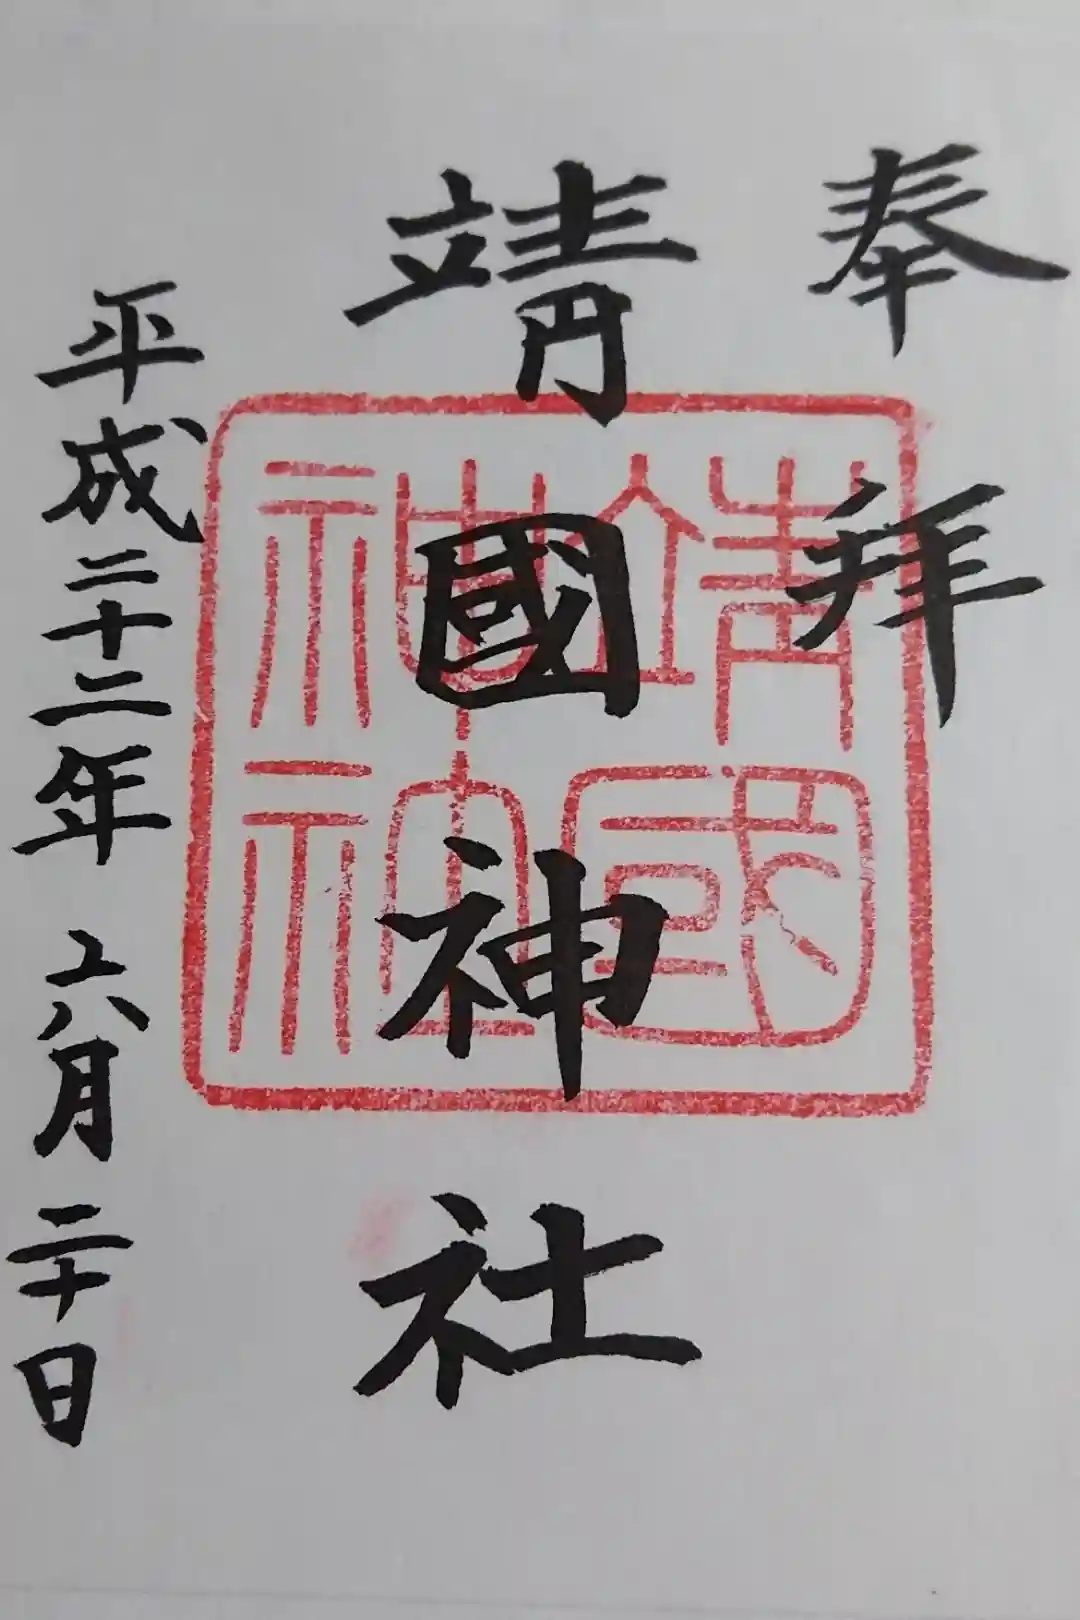 奉拜
靖國神社
平成二十二年 六月 二十日
靖國
神社